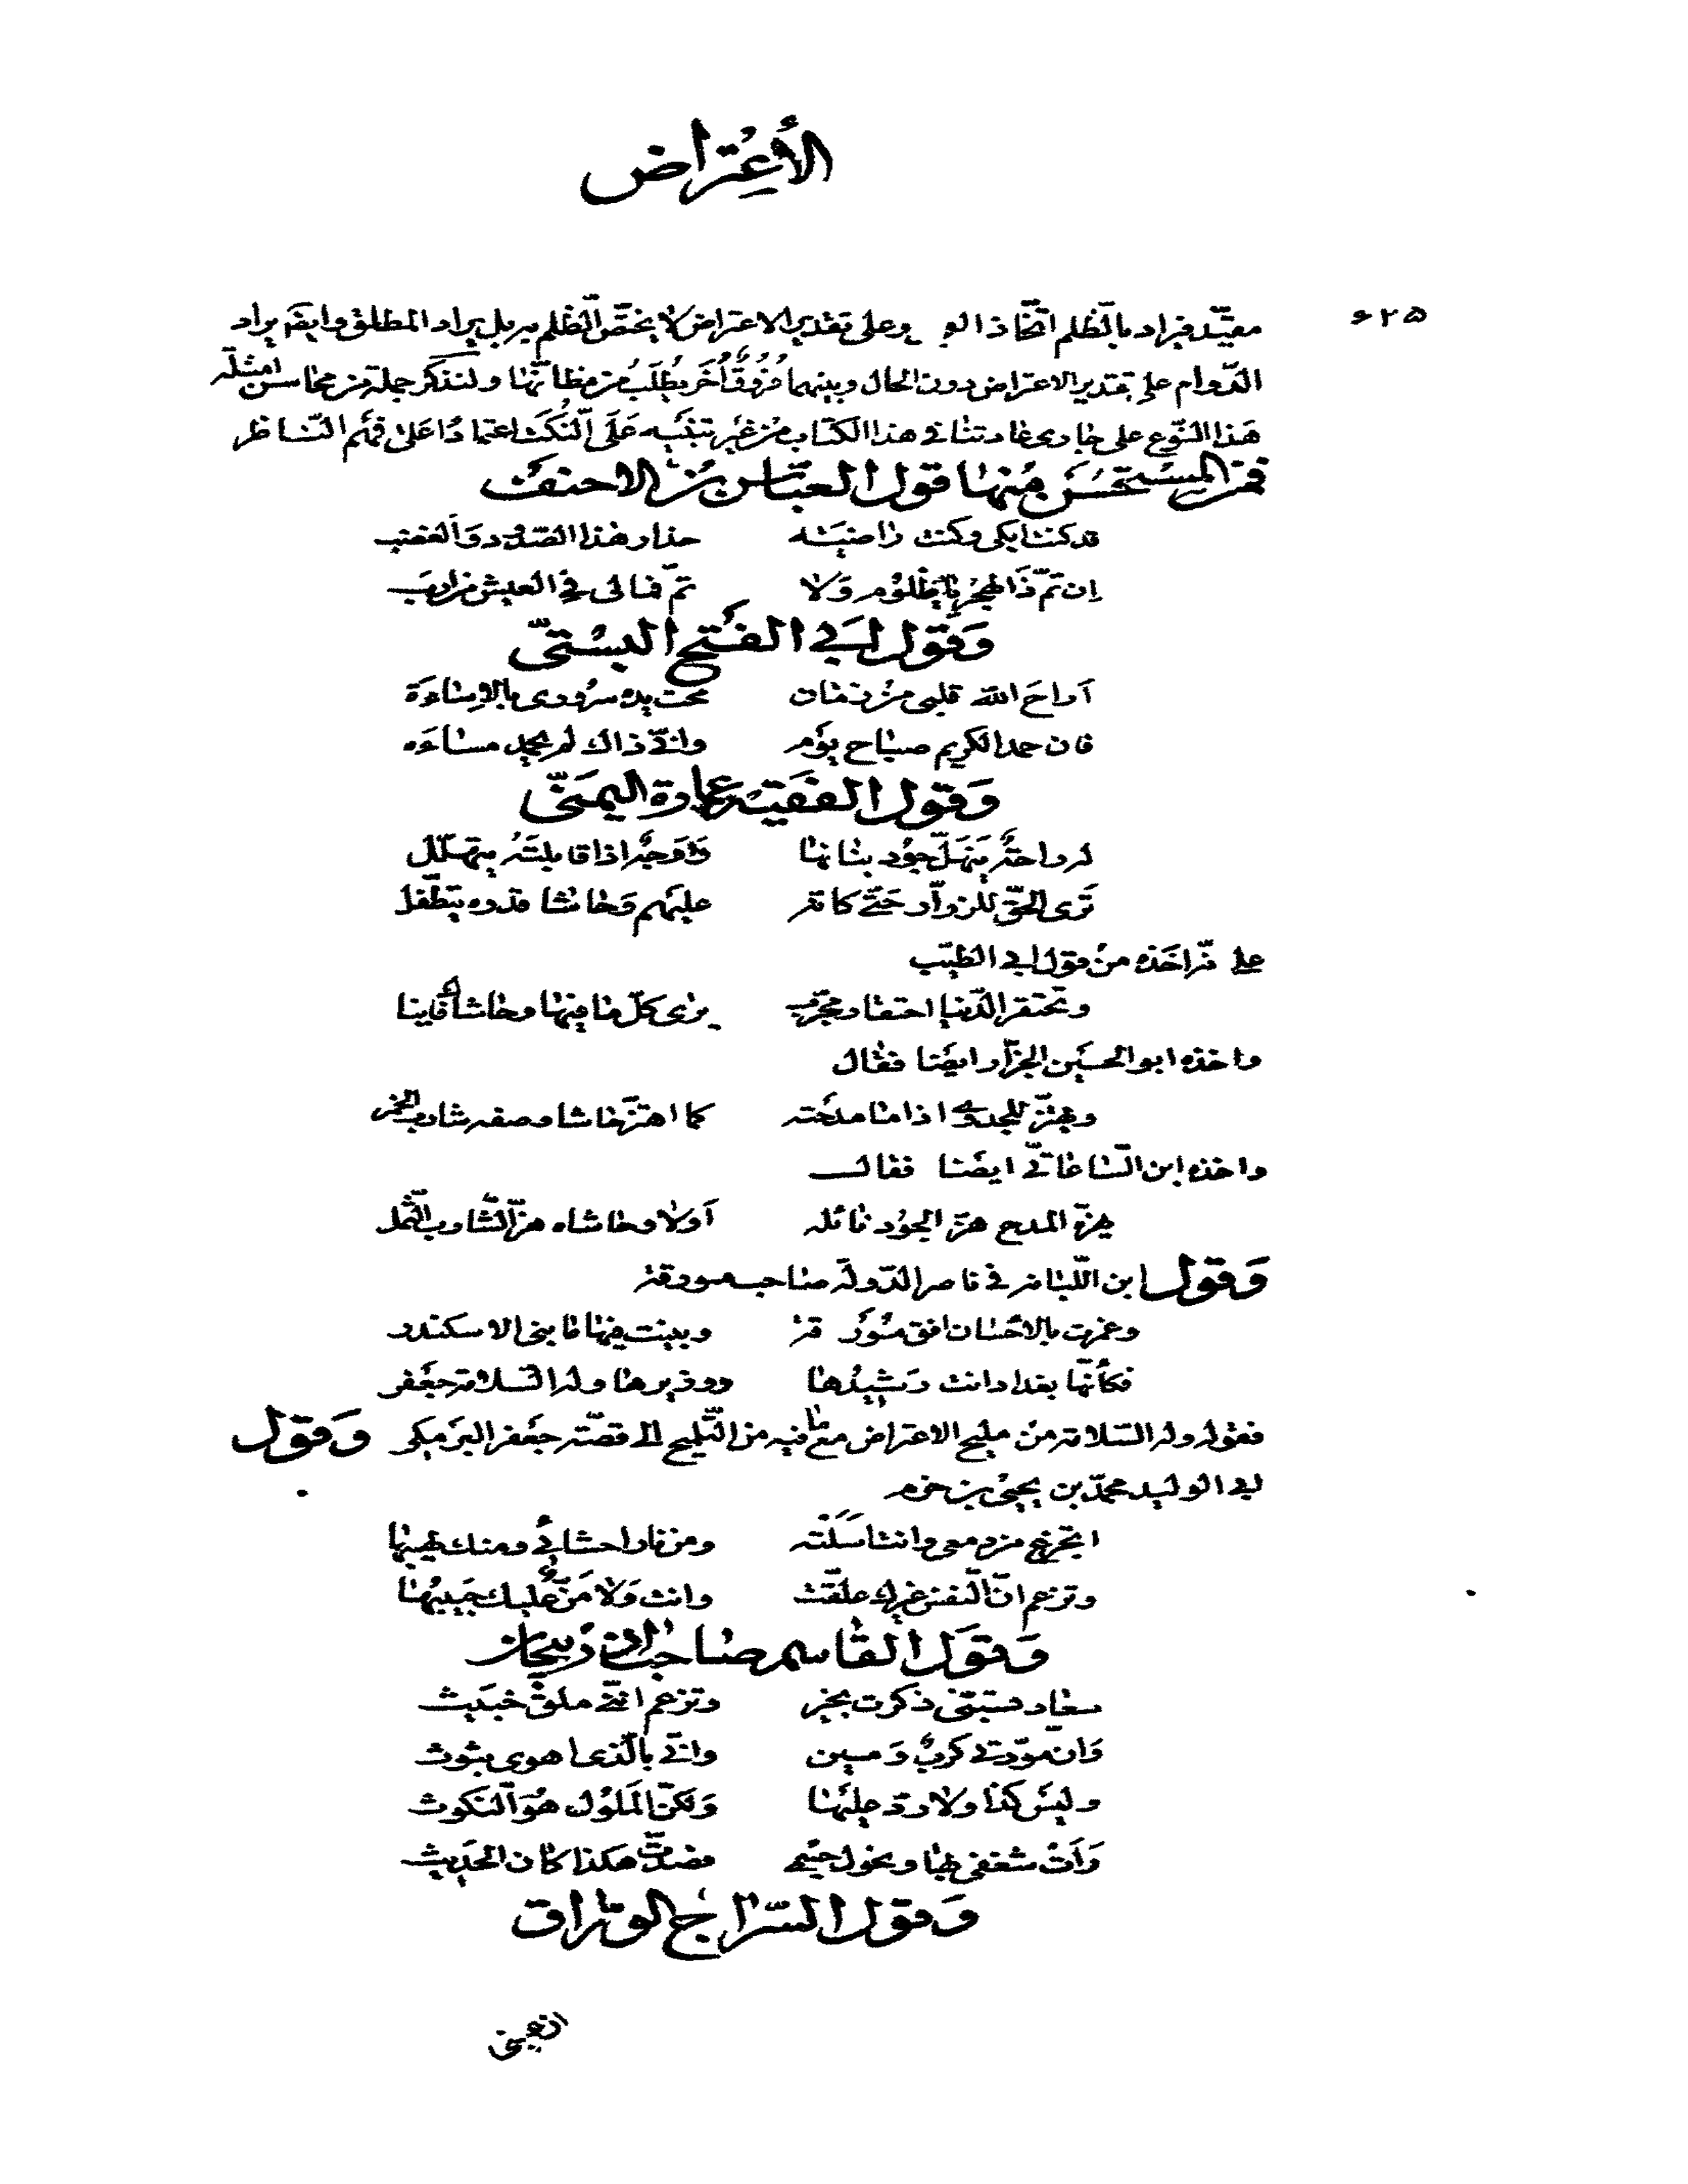 الأعتراض
٦٢٥
مقيّد فيراد بالظلم اتّخاذ العـ وعلى تقدير الاعتراض لا يختصّ الظلم به بل يراد المطلق وايضًا يراد
الدّوام على تقدير الاعتراض دون الحال وبينهما فُرُوقٌ أُخَر يُطْلَبُ من مظانّها ولنذكر جملة من محاسن امثلة
هذا النّوع على جاري عادتنا في هذا الكتاب من غير تنبيه عَلَى النُّكَت اعتمادًا عَلى فهْم النّاظر
فمن المستحسن منها قول العبّاس بن الاحنف
قد كنت ابكي وكنت راضية حذار هذا الصّدود والغضب
إن تمّ ذا الهجر يا ظَلُوم وَلا تمّ فمالي في العيش من ارب
وَقول ابي الفتح البستيّ
أراحَ الله قلبي من زمان محت يده سروري بالإساءة
فان حمد الكريم صباح يوم وانّى ذاك لم يحمد مساءه
وَقول الفقيه عمارة اليمنيّ
له راحة يَنهلّ جُود بنانها وَوَجه اذا قابلته يتهلّل
تَرى الحقّ للزوّار حتّى كانه عليهم وَحاشا قدره يتطفّل
على انه اخذه من قول ابي الطيّب
وتحتقر الدّنيا احتقار مجرّب يرى كلّ ما فيها وحاشاك فانيا
واخذه ابو الحسين الجزّار ايضًا فقال
ويهتزّ للجدوى اذا ما مدحته كما اهتزّ حاشا وصفه شارب الخمر
واخذه ابن السّاعاتيّ ايضًا فقال
يهزّه المدح هزّ الجود نائله أولا وحاشاه هزّ الشّارب الثّمل
وَقول ابن اللّبانه في ناصر الدّولة صاحب ميورقة
وغمرت بالاحسان افق ميُورقة وبنيت فيها ما بنى الاسكندر
فكأنّها بغداد انت رَشيدُها ووزيرها وله السّلامة جعفر
فقوله وله السّلامة من مليح الاعتراض مع ما فيه من التّلميح الى قصّة جعفر البرمكي وَقول
ابي الوليد محمّد بن يحيى بن حزم
اتجزع من دمعي وانت اسَلْتَه ومن نار احشائي ومنك لهيبها
وتزعم انّ النّفس غيرك علقت وانت وَلا مَنّ عليك حَبيبُها
وَقول القاسم صاحب
سعاد تسبّني ذكرت بخير وتزعم انّني ملق خبيث
وَانّ مودّتي كذب وَمين وانّي بالّذي اهوى بثوث
وليس كذا ولا ردّ عليها وَلكنّ الملُول هُوَ النكوث
وَلي شغف بها ونحول جسم فصدّت هكذا كان الحديث
وَقول السّراج الورّاق